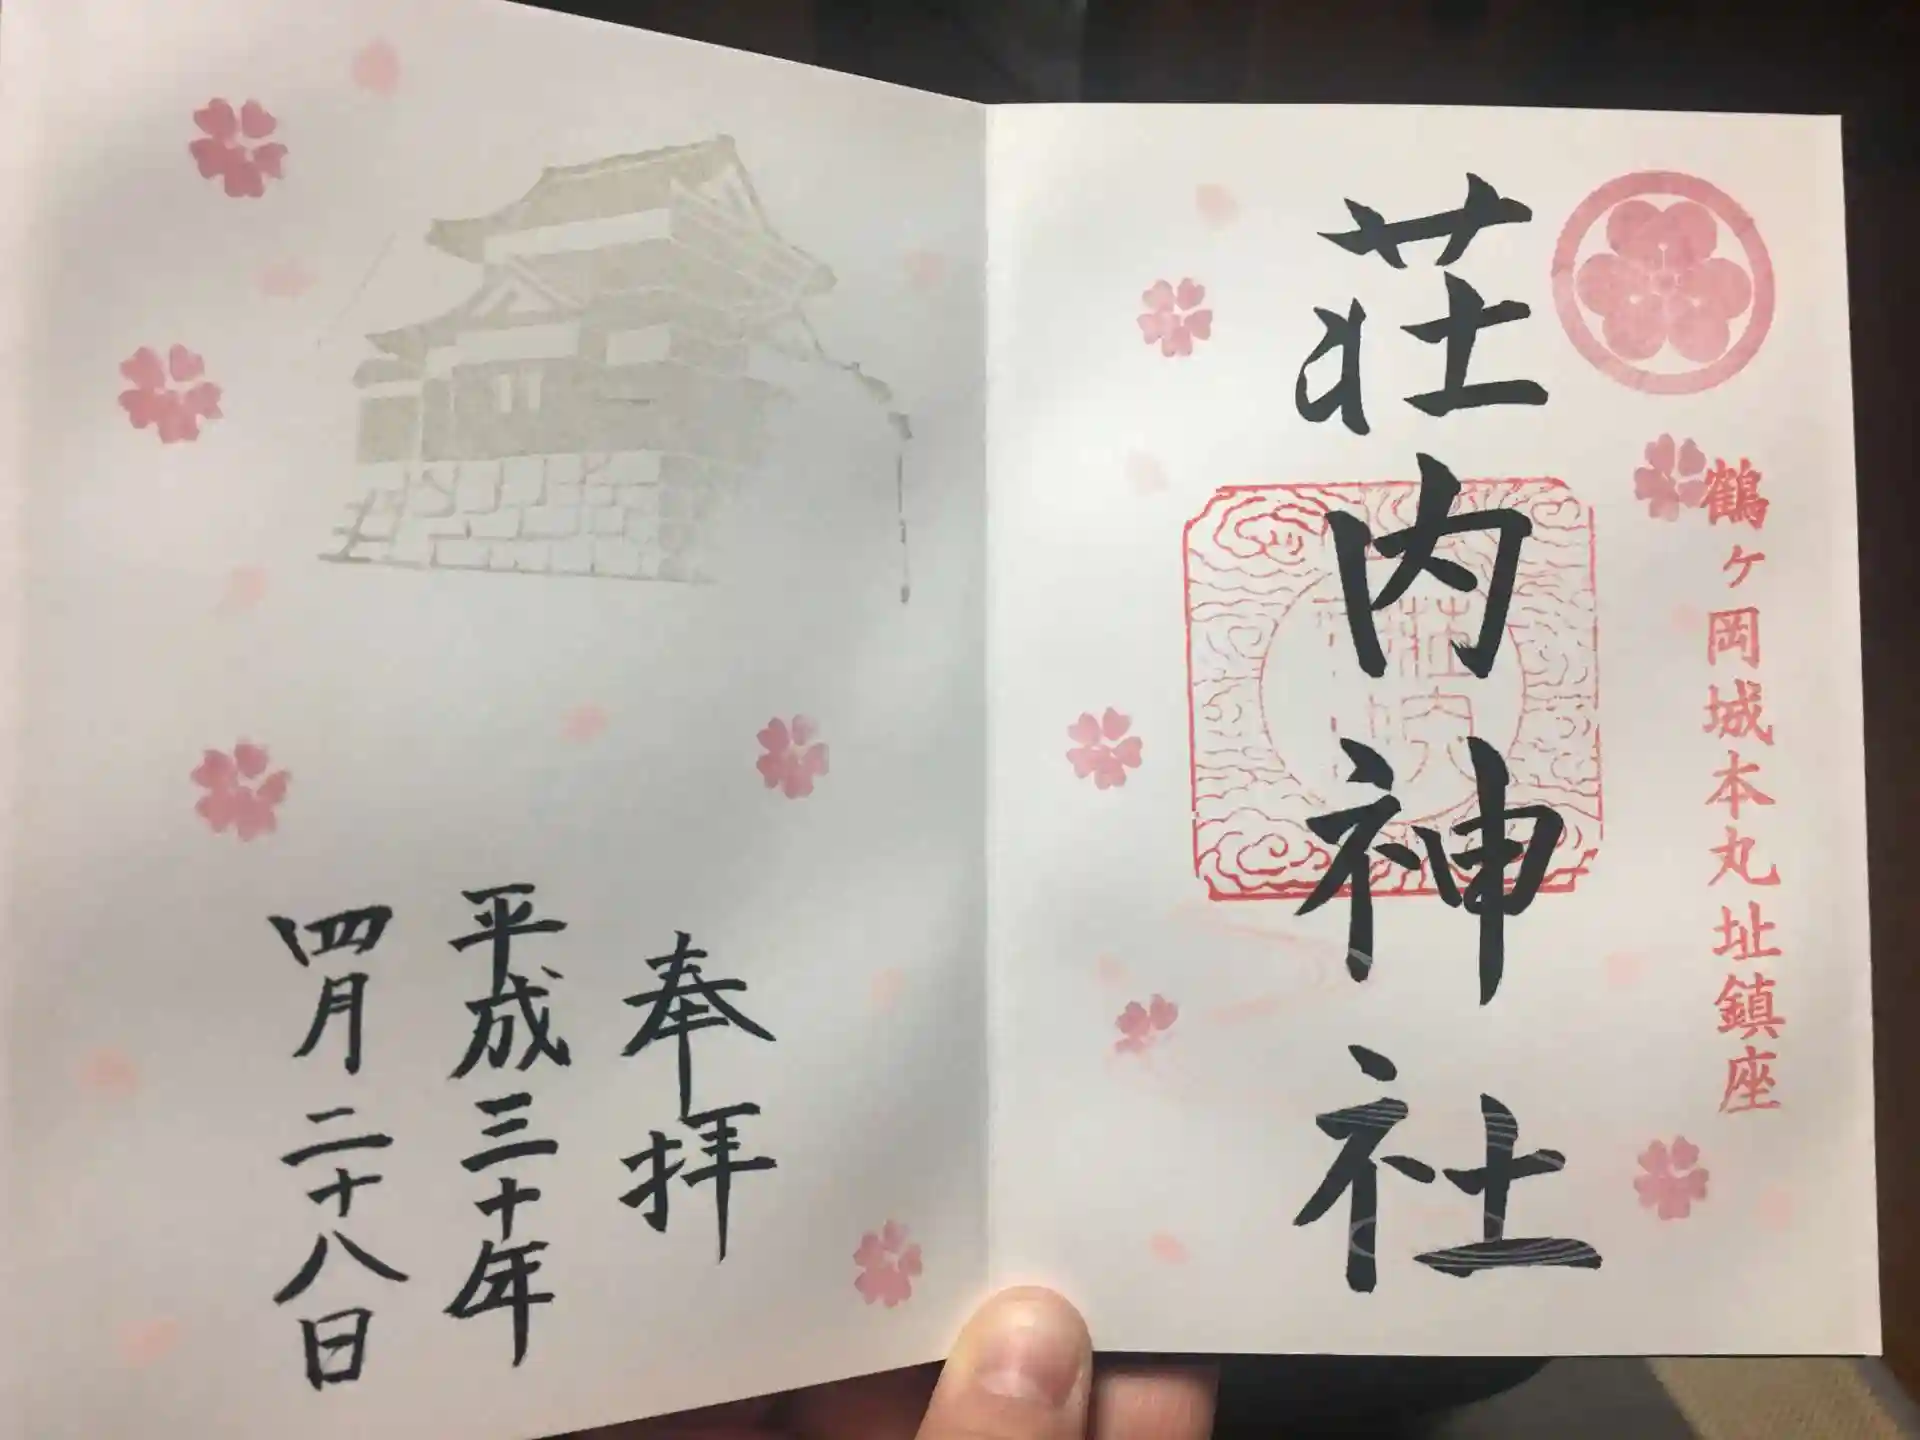 鶴ヶ岡城本丸址鎮座
荘内神社
荘内
奉拝
平成三十年
四月二十八日